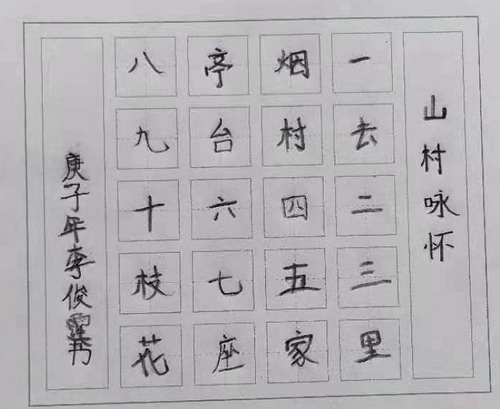 山村咏怀
一去二三里
烟村四五家
亭台六七座
八九十枝花
庚子年李俊霆书